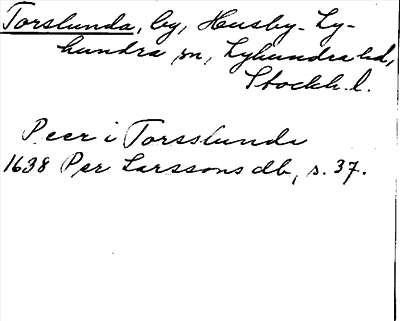 Torslunda, by, Husby-Ly-
hundra sn, Lyhundra hd,
Stockh. l.
Peer i Torsslunda
1638 Per Larssons db, s. 37.